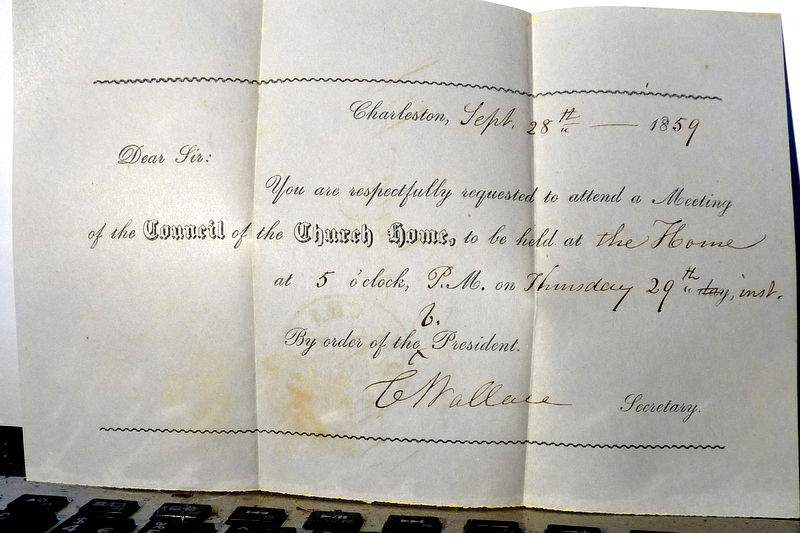 Charleston, Sept. 28th — 1859
Dear Sir:
You are respectfully requested to attend a Meeting
of the Council of the Church Home, to be held at the Home
at 5 o'clock, P.M. on Thursday 29th day, inst.
By order of the V. President.
C Wallace Secretary.